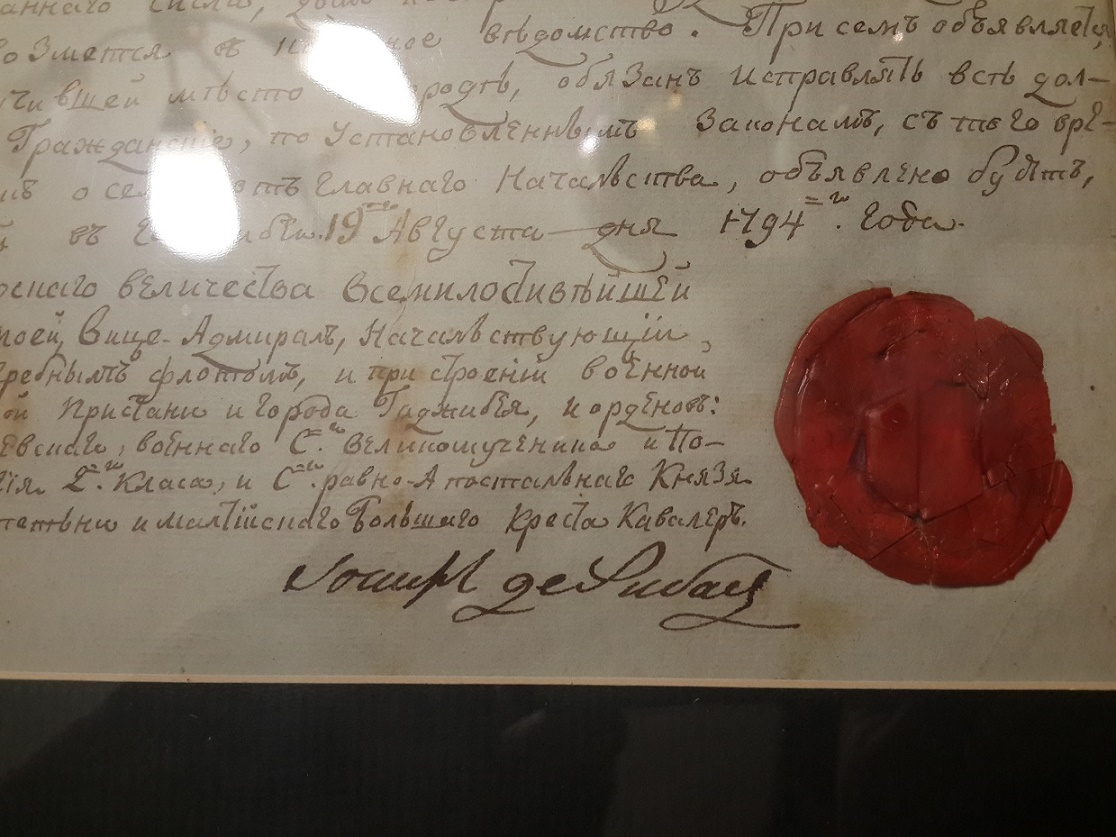 аннаго числа,
возметея въ вѣдомство. При семъ объявляется,
учившей мѣсто городѣ, обязанъ исправлять всѣ дол-
Гражданскіе, по установленнымъ Законамъ, съ того вре-
о сем отъ Главнаго Начальства, объявлено будетъ,
въ 19 Августа дня 1794=го. Года.
величества Всемилостивѣйшей
моей, Вице-Адмиралъ, Начальствующій,
гребнымъ флотомъ, и при строеніи военной
ой Пристани и города Гаджибея, и орденовъ:
евскаго, военнаго С.=го великомученика и По-
2.=го класа, и С.=го равно-Апостальнаго Князя
и малтійскаго большаго креста Кавалеръ.
Іосифъ де Рибасъ